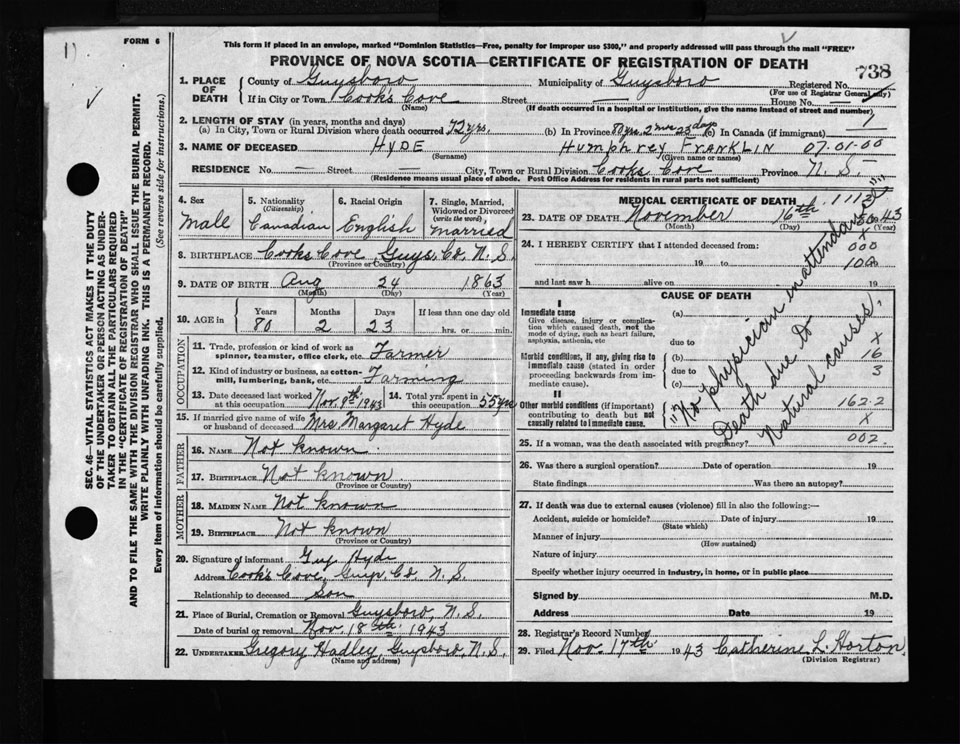 11
FORM 6
This form if placed in an envelope, marked "Dominion Statistics—Free, penalty for improper use $300," and properly addressed will pass through the mail "FREE"
PROVINCE OF NOVA SCOTIA—CERTIFICATE OF REGISTRATION OF DEATH
738
1. PLACE OF DEATH
County of Guysboro Municipality of Guysboro Registered No.
(For use of Registrar General only)
If in City or Town Cook's Cove Street — House No. —
(Name) (If death occurred in a hospital or institution, give the name instead of street and number)
2. LENGTH OF STAY (in years, months and days)
(a) In City, Town or Rural Division where death occurred 72 yrs. (b) In Province 80 yrs. 2 mos 23 days (c) In Canada (if immigrant) 1
3. NAME OF DECEASED HYDE Humphrey FRANKLIN 07-01-00
(Surname) (Given name or names)
RESIDENCE No. — Street — City, Town or Rural Division Cooks Cove Province N. S.
(Residence means usual place of abode. Post Office Address for residents in rural parts not sufficient)
4. Sex
Male
5. Nationality
(Citizenship)
Canadian
6. Racial Origin
English
7. Single, Married, Widowed or Divorced
(write the word)
married
8. BIRTHPLACE Cooks Cove, Guys. Co. N. S.
(Province or Country)
9. DATE OF BIRTH Aug 24 1863
(Month) (Day) (Year)
10. AGE in
Years Months Days If less than one day old
80 2 23 hrs. or min.
OCCUPATION
11. Trade, profession or kind of work as spinner, teamster, office clerk, etc. Farmer
12. Kind of industry or business, as cotton-mill, lumbering, bank, etc. Farming
13. Date deceased last worked at this occupation Nov. 9th, 1943
14. Total yrs. spent in this occupation 55 yrs
15. If married give name of wife or husband of deceased Mrs Margaret Hyde
FATHER
16. NAME Not known
17. BIRTHPLACE Not known
(Province or Country)
MOTHER
18. MAIDEN NAME Not known
19. BIRTHPLACE Not known
(Province or Country)
20. Signature of informant Guy Hyde
Address Cook's Cove, Guys. Co. N. S.
Relationship to deceased Son
21. Place of Burial, Cremation or Removal Guysboro, N. S.
Date of burial or removal Nov. 18th, 1943
22. UNDERTAKER Gregory Hadley, Guysboro, N. S.
(Name and address)
MEDICAL CERTIFICATE OF DEATH
23. DATE OF DEATH November 16th 1943
(Month) (Day) (Year)
24. I HEREBY CERTIFY that I attended deceased from:
000
19 to 100
and last saw h alive on 19
CAUSE OF DEATH
I
Immediate cause
Give disease, injury or complication which caused death, not the mode of dying, such as heart failure, asphyxia, asthenia, etc
(a)
due to X
Morbid conditions, if any, giving rise to immediate cause (stated in order proceeding backwards from immediate cause).
(b) 16
due to 3
(c)
II
Other morbid conditions (if important) contributing to death but not causally related to immediate cause.
162.2
X
"No physician in attendance"
Death due to
Natural causes.
25. If a woman, was the death associated with pregnancy? 002
26. Was there a surgical operation? Date of operation 19
State findings Was there an autopsy?
27. If death was due to external causes (violence) fill in also the following:—
Accident, suicide or homicide? Date of injury 19
(State which)
Manner of injury
(How sustained)
Nature of injury
Specify whether injury occurred in industry, in home, or in public place
Signed by M.D.
Address Date 19
28. Registrar's Record Number
29. Filed Nov. 17th 1943 Catherine L. Horton
(Division Registrar)
SEC. 46—VITAL STATISTICS ACT MAKES IT THE DUTY
OF THE UNDERTAKER OR PERSON ACTING AS UNDER-
TAKER TO OBTAIN ALL THE PARTICULARS REQUIRED
IN THE "CERTIFICATE OF REGISTRATION OF DEATH"
AND TO FILE THE SAME WITH THE DIVISION REGISTRAR WHO SHALL ISSUE THE BURIAL PERMIT.
WRITE PLAINLY WITH UNFADING INK. THIS IS A PERMANENT RECORD.
Every item of information should be carefully supplied. (See reverse side for instructions.)